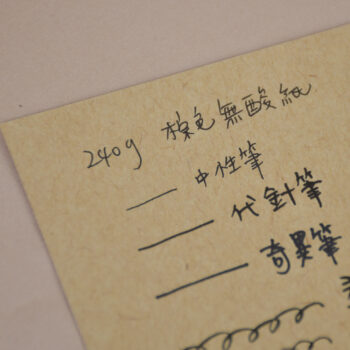 240g 棕色無酸紙
中性筆
代針筆
奇異筆